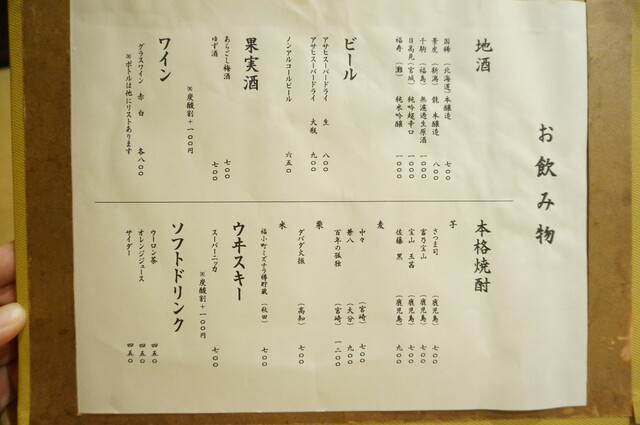 お飲み物
地酒
国稀 (北海道) 本醸造 七〇〇
(新潟) 龍 本醸造 八〇〇
千駒 (福島) 無濾過生原酒 一〇〇〇
日高見 (宮城) 純吟超辛口 一〇〇〇
福寿 (灘) 純米吟醸 一〇〇〇
ビール
アサヒスーパードライ 生 八〇〇
アサヒスーパードライ 大瓶 九〇〇
ノンアルコールビール 六五〇
果実酒
あらごし梅酒 七〇〇
ゆず酒 七〇〇
※炭酸割+一〇〇円
ワイン
グラスワイン 赤 白 各八〇〇
※ボトルは他にリストあります
本格焼酎
子
さつま司 (鹿児島) 七〇〇
富乃宝山 (鹿児島) 七〇〇
宝山 (鹿児島) 七〇〇
佐藤 黒 (鹿児島) 九〇〇
麦
中々 (宮崎) 七〇〇
兼八 (大分) 九〇〇
百年の孤独 (宮崎) 一二〇〇
栗
ダバダ火振 (高知) 七〇〇
米
福小町ミズナラ樽貯蔵 (秋田) 七〇〇
ウヰスキー
スーパーニッカ 七〇〇
※炭酸割+一〇〇円
ソフトドリンク
ウーロン茶 四五〇
オレンジジュース 四五〇
サイダー 四五〇